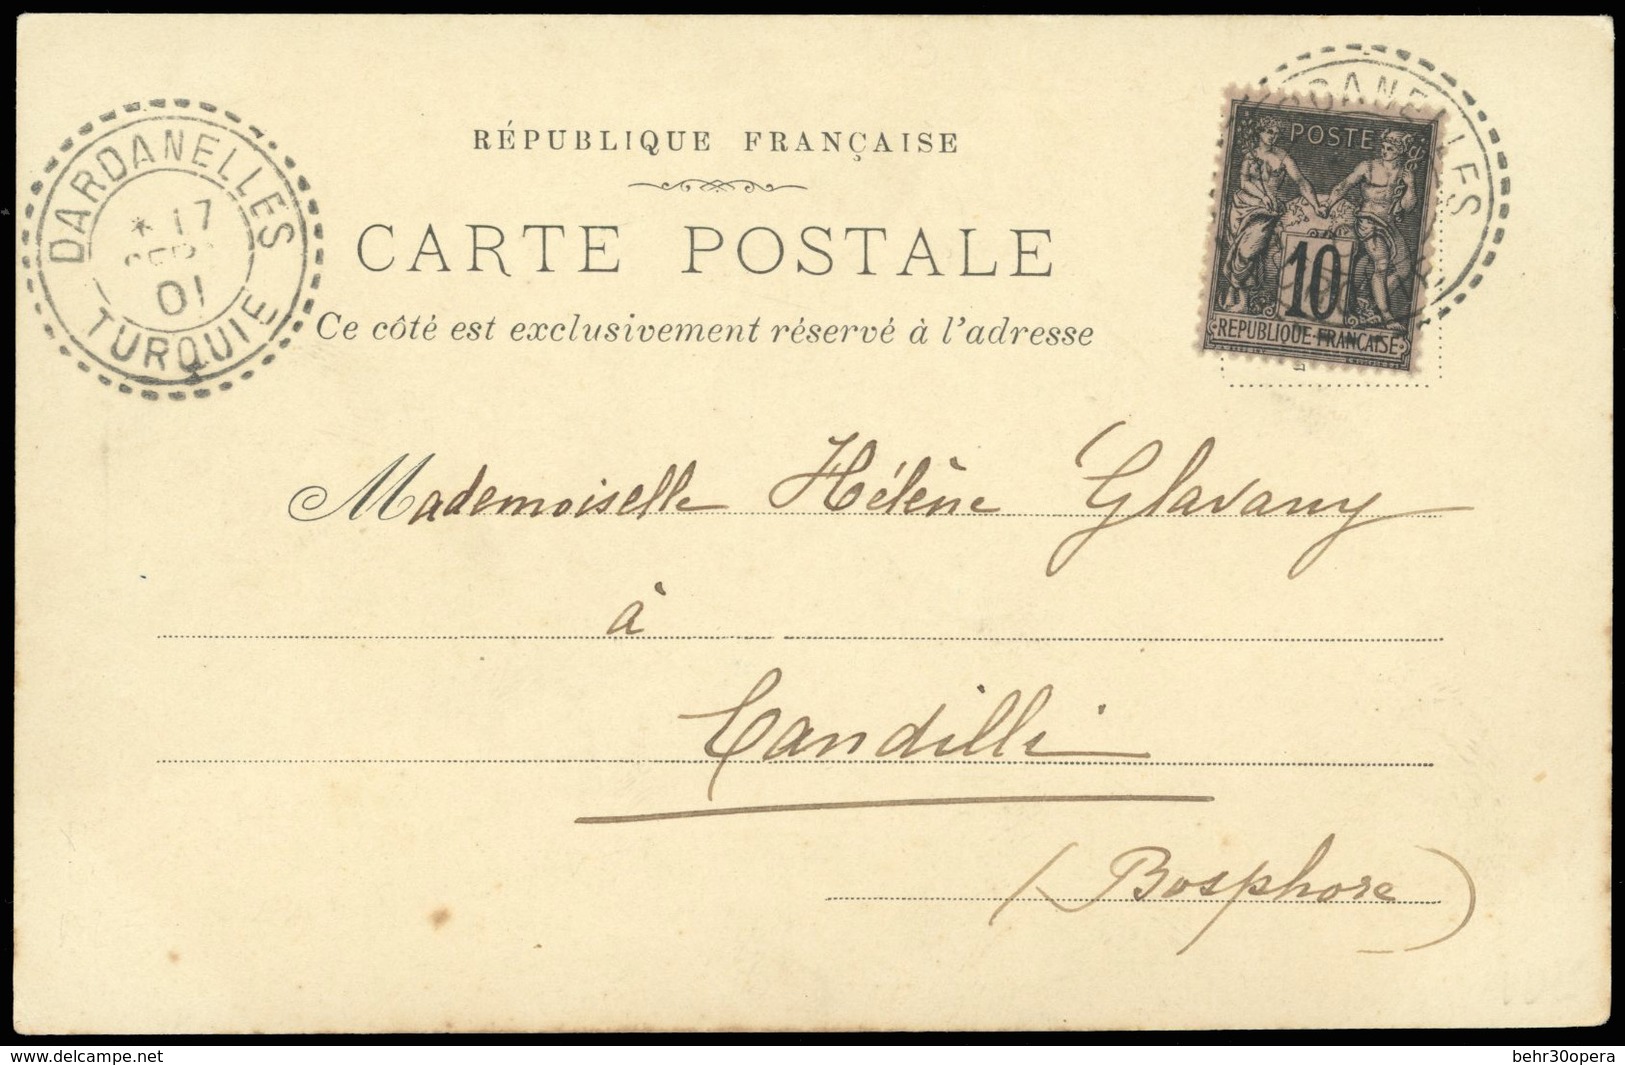 RÉPUBLIQUE FRANÇAISE
CARTE POSTALE
Ce côté est exclusivement réservé à l'adresse
DARDANELLES
* 17
SEPT
01
TURQUIE
POSTE
10
RÉPUBLIQUE FRANÇAISE
Mademoiselle Hélène Glavany
à
Candilli
(Bosphore)
www.delcampe.net
behr30opera